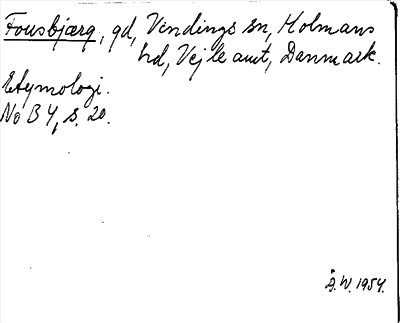 Fousbjærg, gd, Vindings sn, Holmans
hd, Vejle amt, Danmark.
Etymologi.
NoB Y, s. 20.
Å.W. 1954.